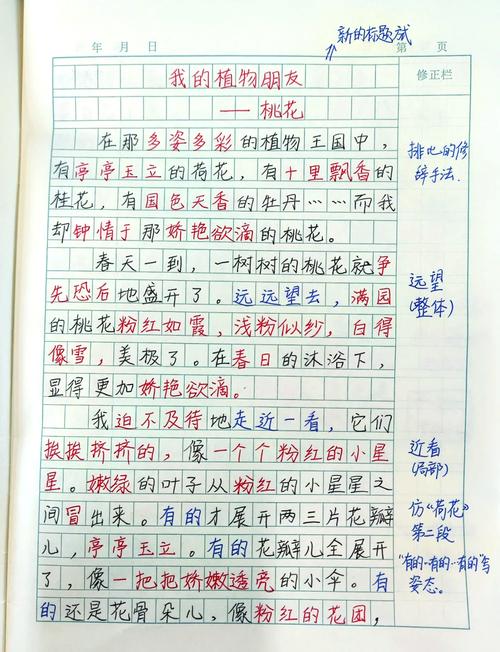 新的标题试
年 月 日 第 页
我的植物朋友
修正栏
——桃花
在那多姿多彩的植物王国中，
有亭亭玉立的荷花，有十里飘香的
桂花，有国色天香的牡丹……而我
却钟情于那娇艳欲滴的桃花。
排比的修
辞手法.
春天一到，一树树的桃花就争
先恐后地盛开了。远远望去，满园
的桃花粉红如霞，浅粉似纱，白得
像雪，美极了。在春日的沐浴下，
显得更加娇艳欲滴。
远望
(整体)
我迫不及待地走近一看，它们
挨挨挤挤的，像一个个粉红的小星
星。嫩绿的叶子从粉红的小星星之
间冒出来。有的才展开两三片花瓣
儿，亭亭玉立。有的花瓣儿全展开
了，像一把把娇嫩透亮的小伞。有
的还是花骨朵儿，像粉红的花团，
近看
(局部)
仿《荷花》
第二段
"有的…有的…有的"写
姿态。